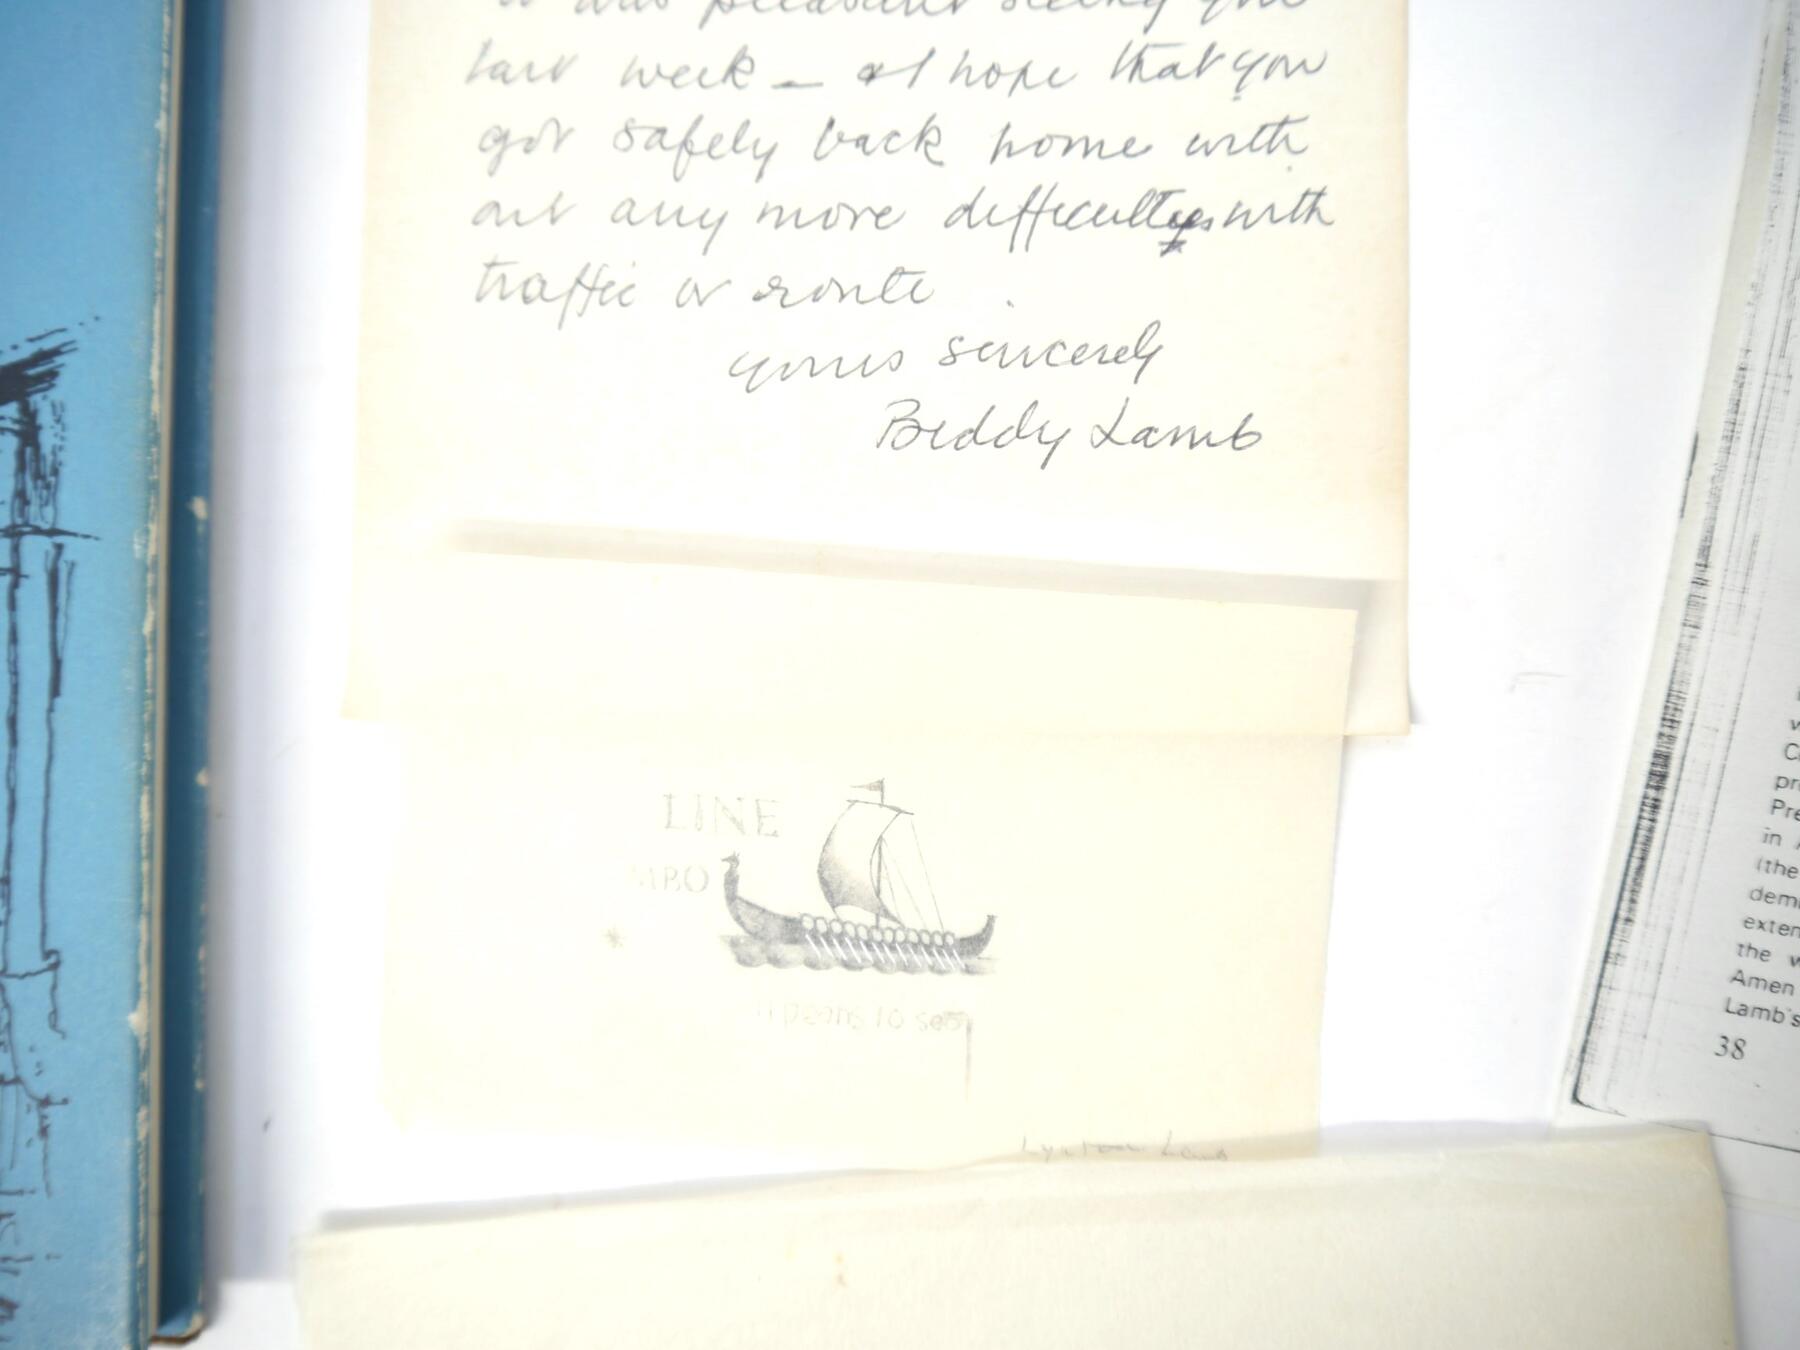 it was pleasant seeing you
last week — & I hope that you
got safely back home with
out any more difficultys with
traffic or route.
yours sincerely
Biddy Lamb
LINE
MBO
*
Lynton Lamb
Pre
in
(the
dem
exten
the w
Amen
Lamb's
38